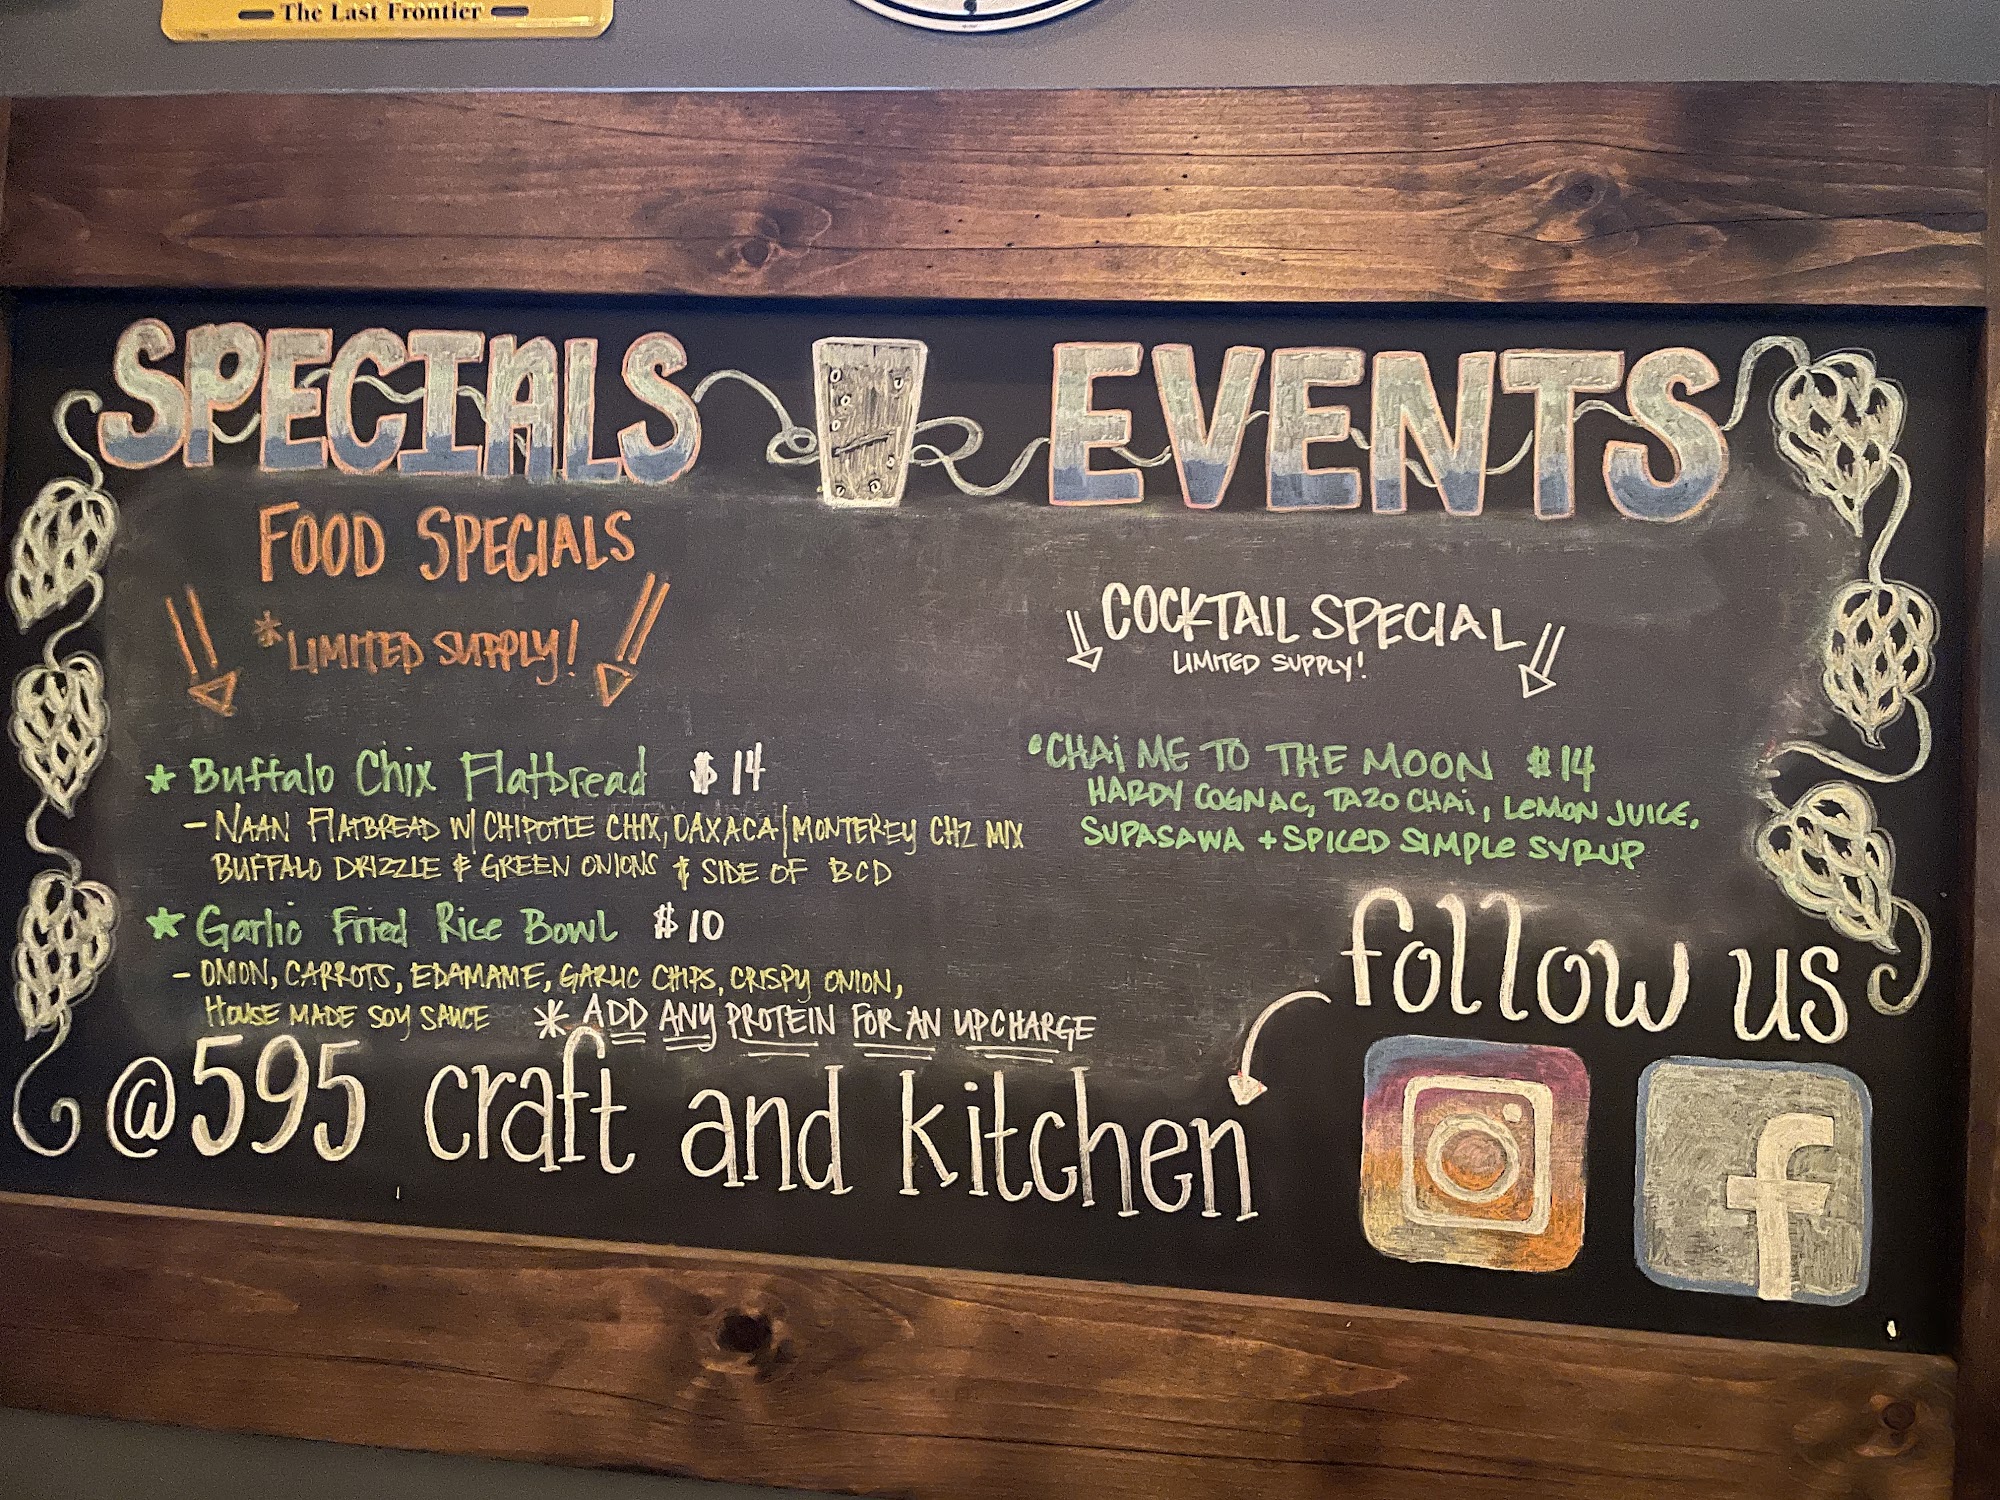 The Last Frontier
SPECIALS
EVENTS
FOOD SPECIALS
*LIMITED SUPPLY!
★ Buffalo Chix Flatbread $14
- NAAN FLATBREAD W/ CHIPOTLE CHIX, OAXACA/MONTEREY CHZ MIX
BUFFALO DRIZZLE & GREEN ONIONS & SIDE OF BCD
★ Garlic Fried Rice Bowl $10
- ONION, CARROTS, EDAMAME, GARLIC CHIPS, CRISPY ONION,
HOUSE MADE SOY SAUCE * ADD ANY PROTEIN FOR AN UPCHARGE
COCKTAIL SPECIAL
LIMITED SUPPLY!
•CHAi ME TO THE MOON $14
HARDY COGNAC, TAZO CHAi, LeMON JUICE,
SUPASAWA + SPICeD SIMPLe SYRUP
follow us
@595 craft and kitchen
f